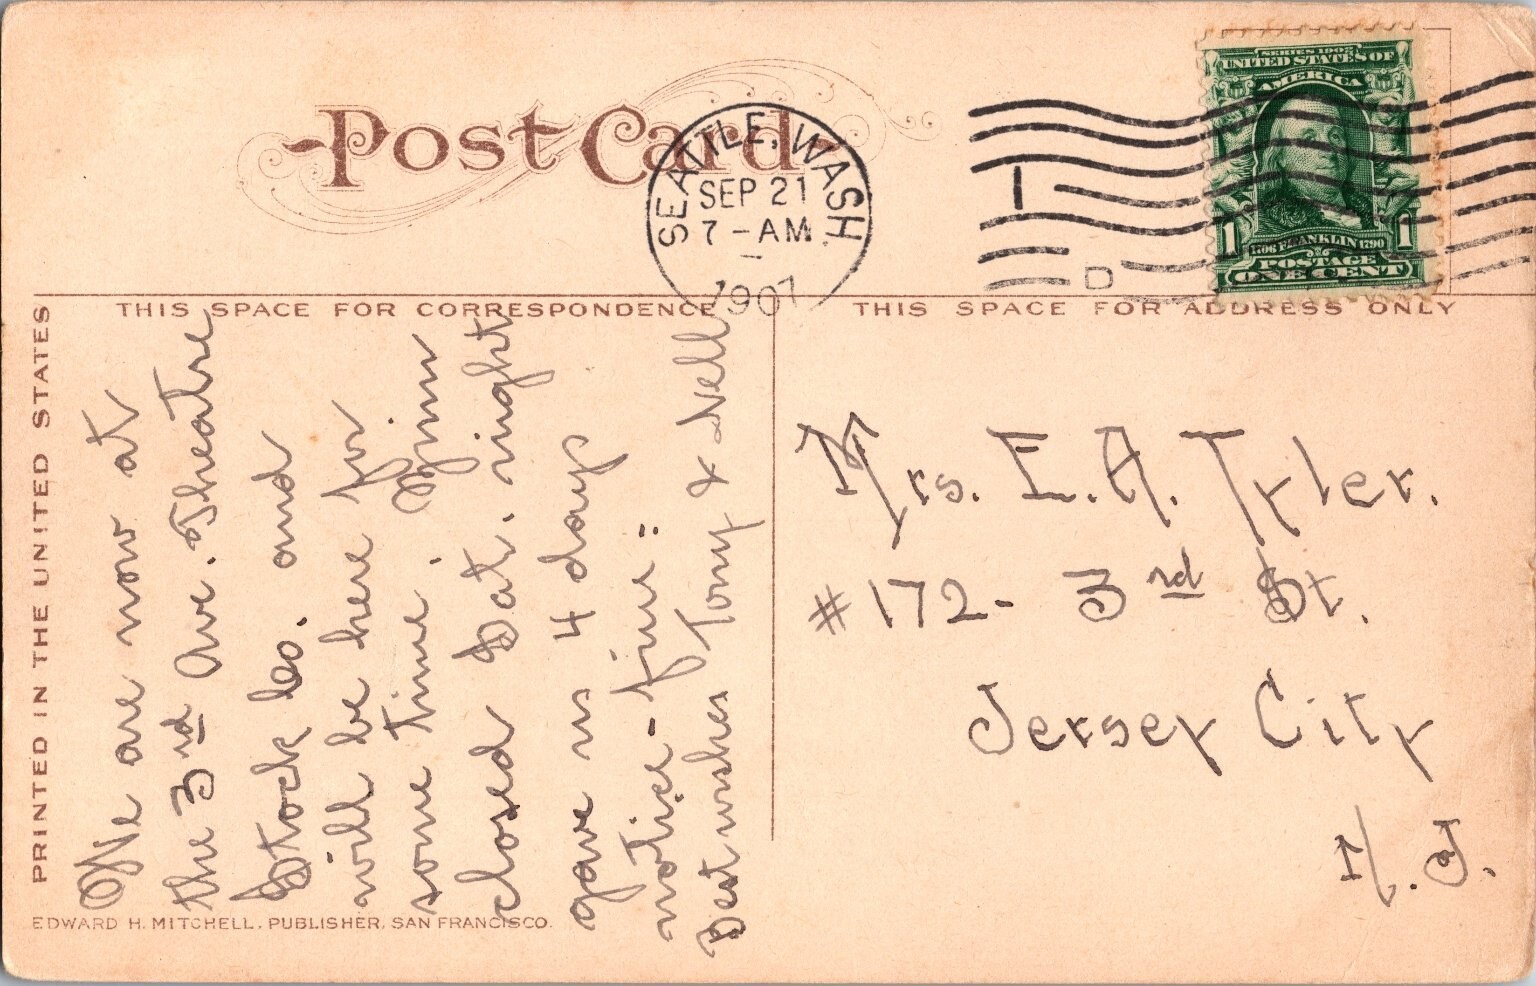 Post Card
SEATTLE, WASH.
SEP 21
7 - AM
1907
1
D
SERIES 1902
UNITED STATES OF
AMERICA
1 1
1706 FRANKLIN 1790
POSTAGE
ONE CENT
THIS SPACE FOR CORRESPONDENCE
THIS SPACE FOR ADDRESS ONLY
PRINTED IN THE UNITED STATES
We are now at
the 3rd Ave. Theatre
Stock Co. and
will be here for
some time.
closed Sat. night
gave us 4 days
notice - fine"
Best wishes Tony & Nell
Mrs. E. A. Tyler.
#172- 3rd St.
Jersey City
N. J.
EDWARD H. MITCHELL, PUBLISHER, SAN FRANCISCO.